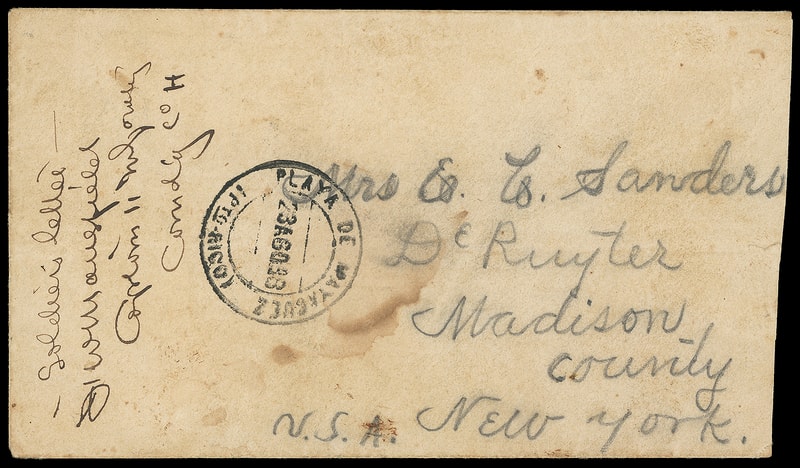 — Soldier's letter —
Captain 11
Comd'g Co H
PLAYA DE MAYAGUEZ
(PTO-RICO)
23 AGO 98
Mrs E. C. Sanders
De Ruyter
Madison
county
U.S.A. New York.